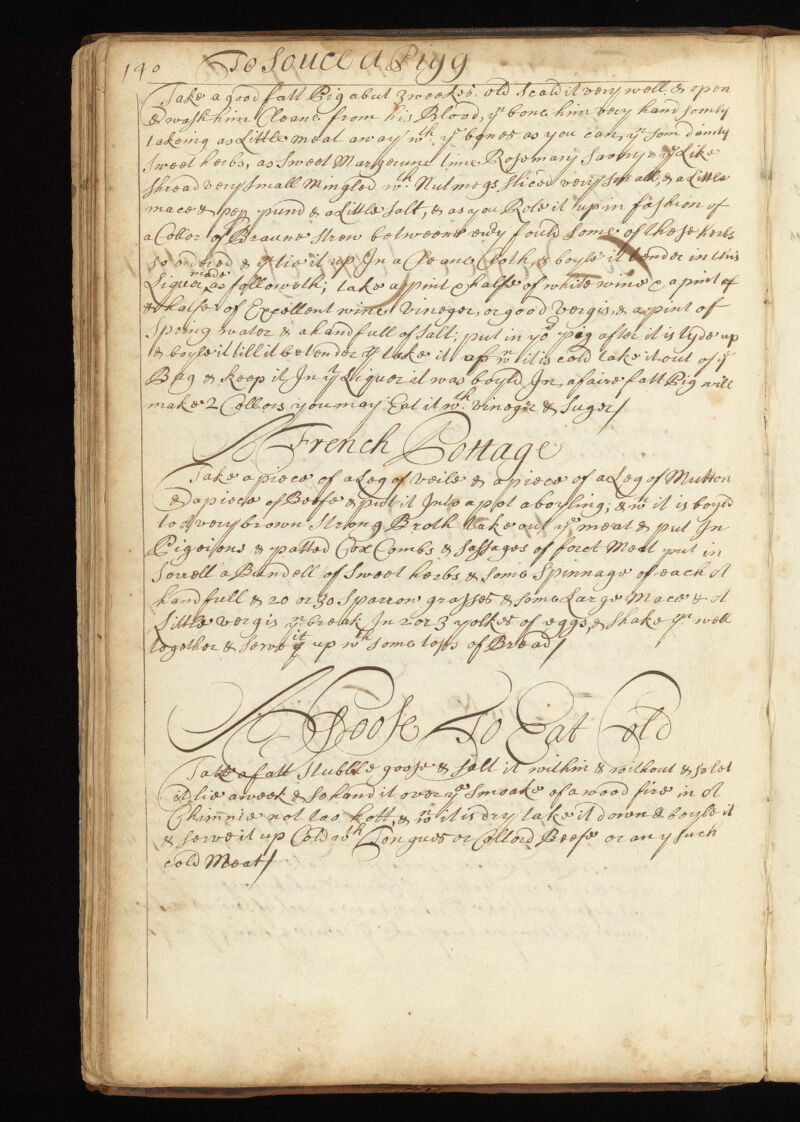 140 To Souce a Pigg
Take a good fatt Pig about 3 weekes old scald it very well, & open
& wash him Cleane from his Blood, yn bone him very handsomly
takeing as Little meat away wth ye bones as you can, yn som dainty
Sweet herbs, as Sweet Margerum time Rosemary Savory & ye Like
shread very small Mingled wth Nutmegs sliced very small, & a Little
mace & pepp pund & a Little salt, & as you Role it up in fashion of
a Collor of Braune strew betweene evry fould some of these herbs
so ordered & yn tie it up In a Cleane Cloth, & boyle it tender in this
Liquor made as followeth; take a pint & halfe of white wine & a pint &
halfe of Excellent wine Vineger, or good Vergis, & a pint of
Spring water & a handfull of salt, put in yor pig after it is tyde up
& boyle it till it be tender yn take it up wn it is cold take it out of ye
Bag & keep it In ye Liquor it was boyld In, a faire fatt Pig will
make 2 Collors you may Eat it wth Vineger & Suger/
A French Pottage
Take a piece of a Leg of Veile & a piece of a Leg of Mutton
& a piece of Beefe & put it Into a pot a boyling; & wn it is boyld
to a very brown Strong Broth take out ye meat & put In
Pigeions & patted Cox Combs & Sassages of forct Meat put in
Sorrell a Bundell of Sweet herbs & some Spinnage of each a
handfull & 20 or 30 Sparrow grasses & some Large Mace & a
Little vergis yn break In 2 or 3 yolkes of eggs, & shake ym well
together & serve it up wth some tops of Bread/
A Goose To Eat Cold
Take a fatt Stubble goose & salt it within & without & so let
it lie a week & so hand it over ye Smoake of a wood fire in a
Chimnie not too hott, & wn it is dry take it down & boyle it
& serve it up Cold wth Tongues or Collord Beefe or any such
cold Meat/